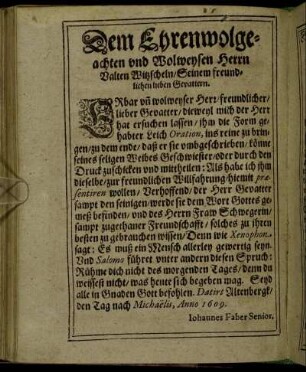 Dem Ehrenwolge-
achten vnd Wolweysen Herrn
Valten Witzscheln/ Seinem freund-
lichen lieben Gevattern.
ERbar vñ wolweyser Herr/ freundlicher/
lieber Gevatter/ dieweyl mich der Herr
hat ersuchen lassen/ ihm die Form ge-
habter Leich Oration, ins reine zu brin-
gen/ zu dem ende/ daß er sie vmbgeschrieben/ köñe
seines seligen Weibes Geschwister/ oder durch den
Druck zuschicken vnd mittheilen: Als habe ich ihm
dieselbe/ zur freundlichen Willfahrung/ hiemit præ-
sentiren wollen/ Verhoffend/ der Herr Gevatter
sampt den seinigen/ werde sie dem Wort Gottes ge-
meß befinden/ vnd des Herrn Fraw Schwegerin/
sampt zugethaner Freundschafft/ solches zu ihren
besten zu gebrauchen wissen/ Denn wie Xenophon.
sagt: Es muß ein Mensch allerley gewertig seyn.
Vnd Salomo führet vnter andern diesen Spruch:
Rühme dich nicht des morgenden Tages/ denn du
weissest nicht/ was heute sich begeben mag. Seyd
alle in Gnaden Gott befohlen. Datirt Altenbergk/
den Tag nach Michaëlis, Anno 1609.
Iohannes Faber Senior.